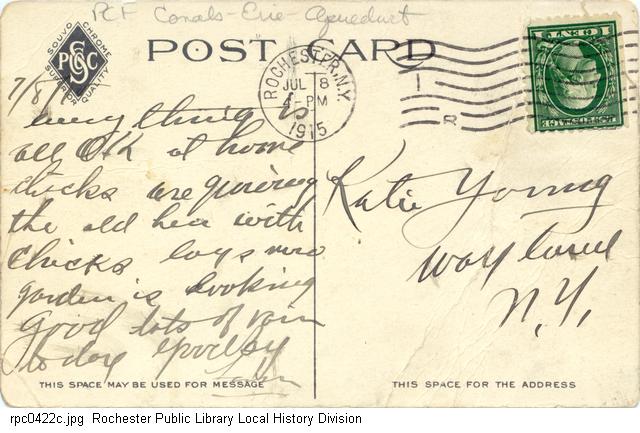 PCF Canals - Erie - Aqueduct
POST CARD
SOUVO CHROME
PCSC
SUPERIOR QUALITY
ROCHESTER, N.Y.
JUL 8
4-PM
1915
1
7/8/15
everything is
all OK at home
chicks are growing
the old hen with
chicks lays now
garden is looking
good lots of rain
today
Katie Young
Wayland
N.Y.
THIS SPACE MAY BE USED FOR MESSAGE
THIS SPACE FOR THE ADDRESS
rpc0422c.jpg Rochester Public Library Local History Division